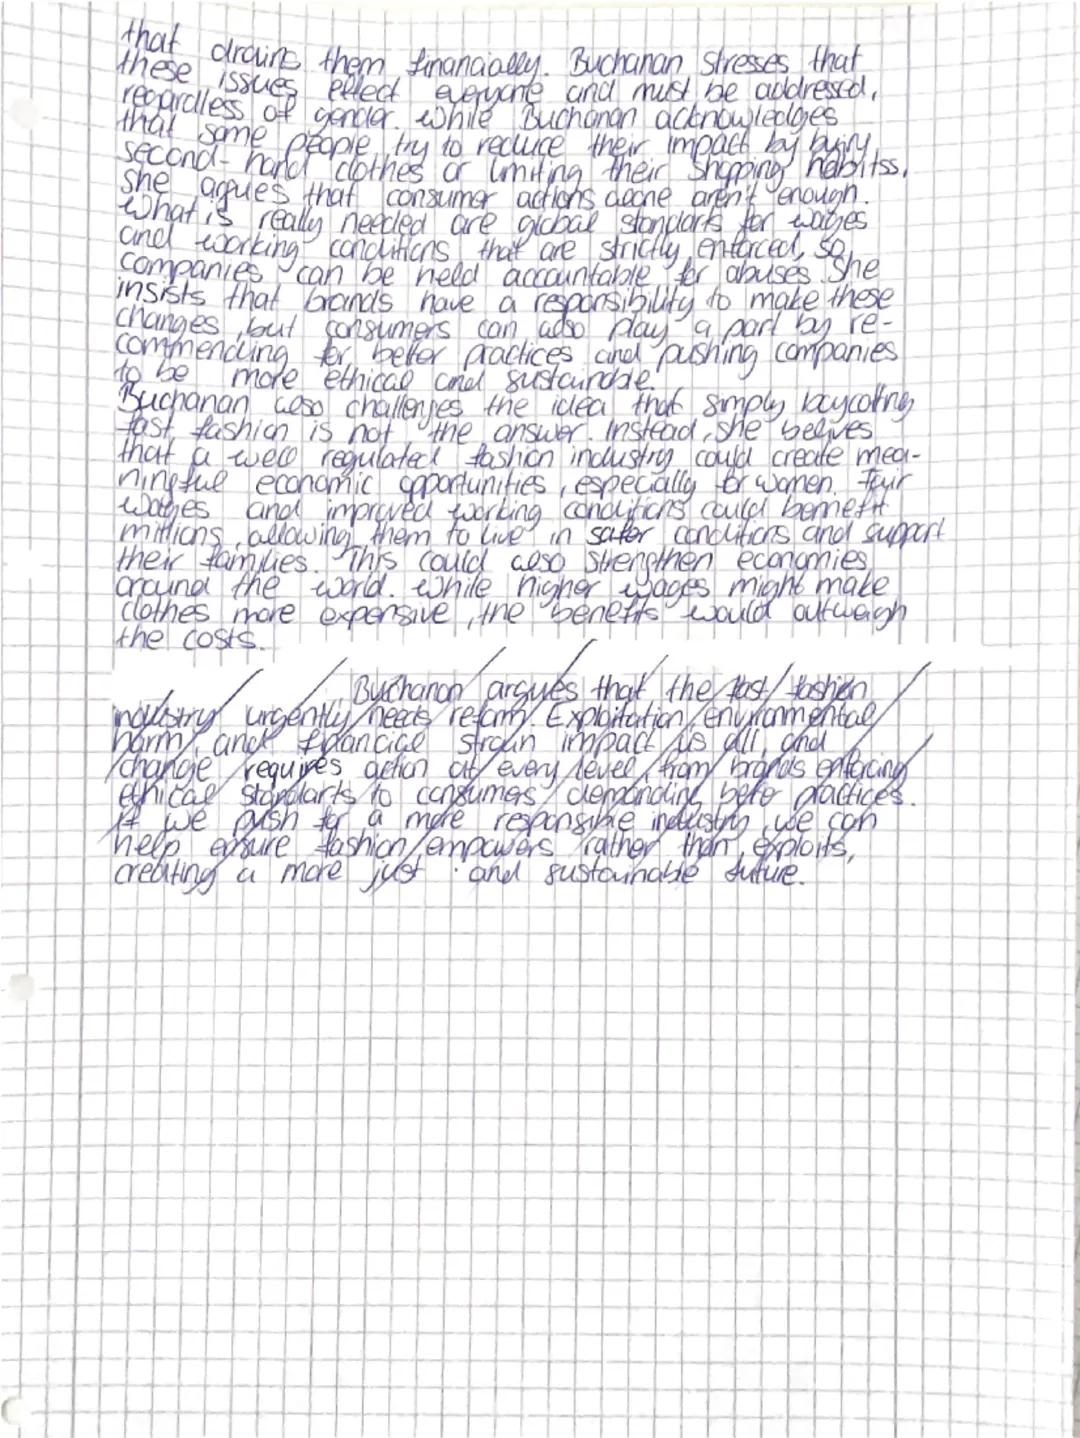 that drains them financially. Buchanan stresses that
these issues effect everyone and must be addressed,
regardless of gender. While Buchanan acknowledges
that some people try to reduce their impact by buiny
second-hand clothes or limiting their shopping habitss,
she argues that consumer actions alone aren't enough.
What is really needed are global standarts for wages
and working conditions that are strictly enforced, so
companies can be held accountable for abuses. She
insists that brands have a responsibility to make these
changes, but consumers can also play a part by re-
commending for better practices and pushing companies
to be more ethical and sustainable.
Buchanan also challenges the idea that simply boycotting
fast fashion is not the answer. Instead, she belives
that a well regulated fashion industry could create mea-
ningful economic opportunities, especially for women. Fair
wages and improved working conditions could bennefit
millions, allowing them to live in safer conditions and support
their families. This could also strengthen economies
around the world. While higher wages might make
clothes more expensive, the benefits would outweigh
the costs.
Buchanan argues that the fast fashion
industry urgently needs reform. Exploitation, environmental
harm, and financial strain impact us all, and
change requires action at every level, from brands enforcing
ethical standarts to consumers demanding better practices.
If we push for a more responsible industry, we can
help ensure fashion empowers rather than exploits,
creating a more just and sustainable future.